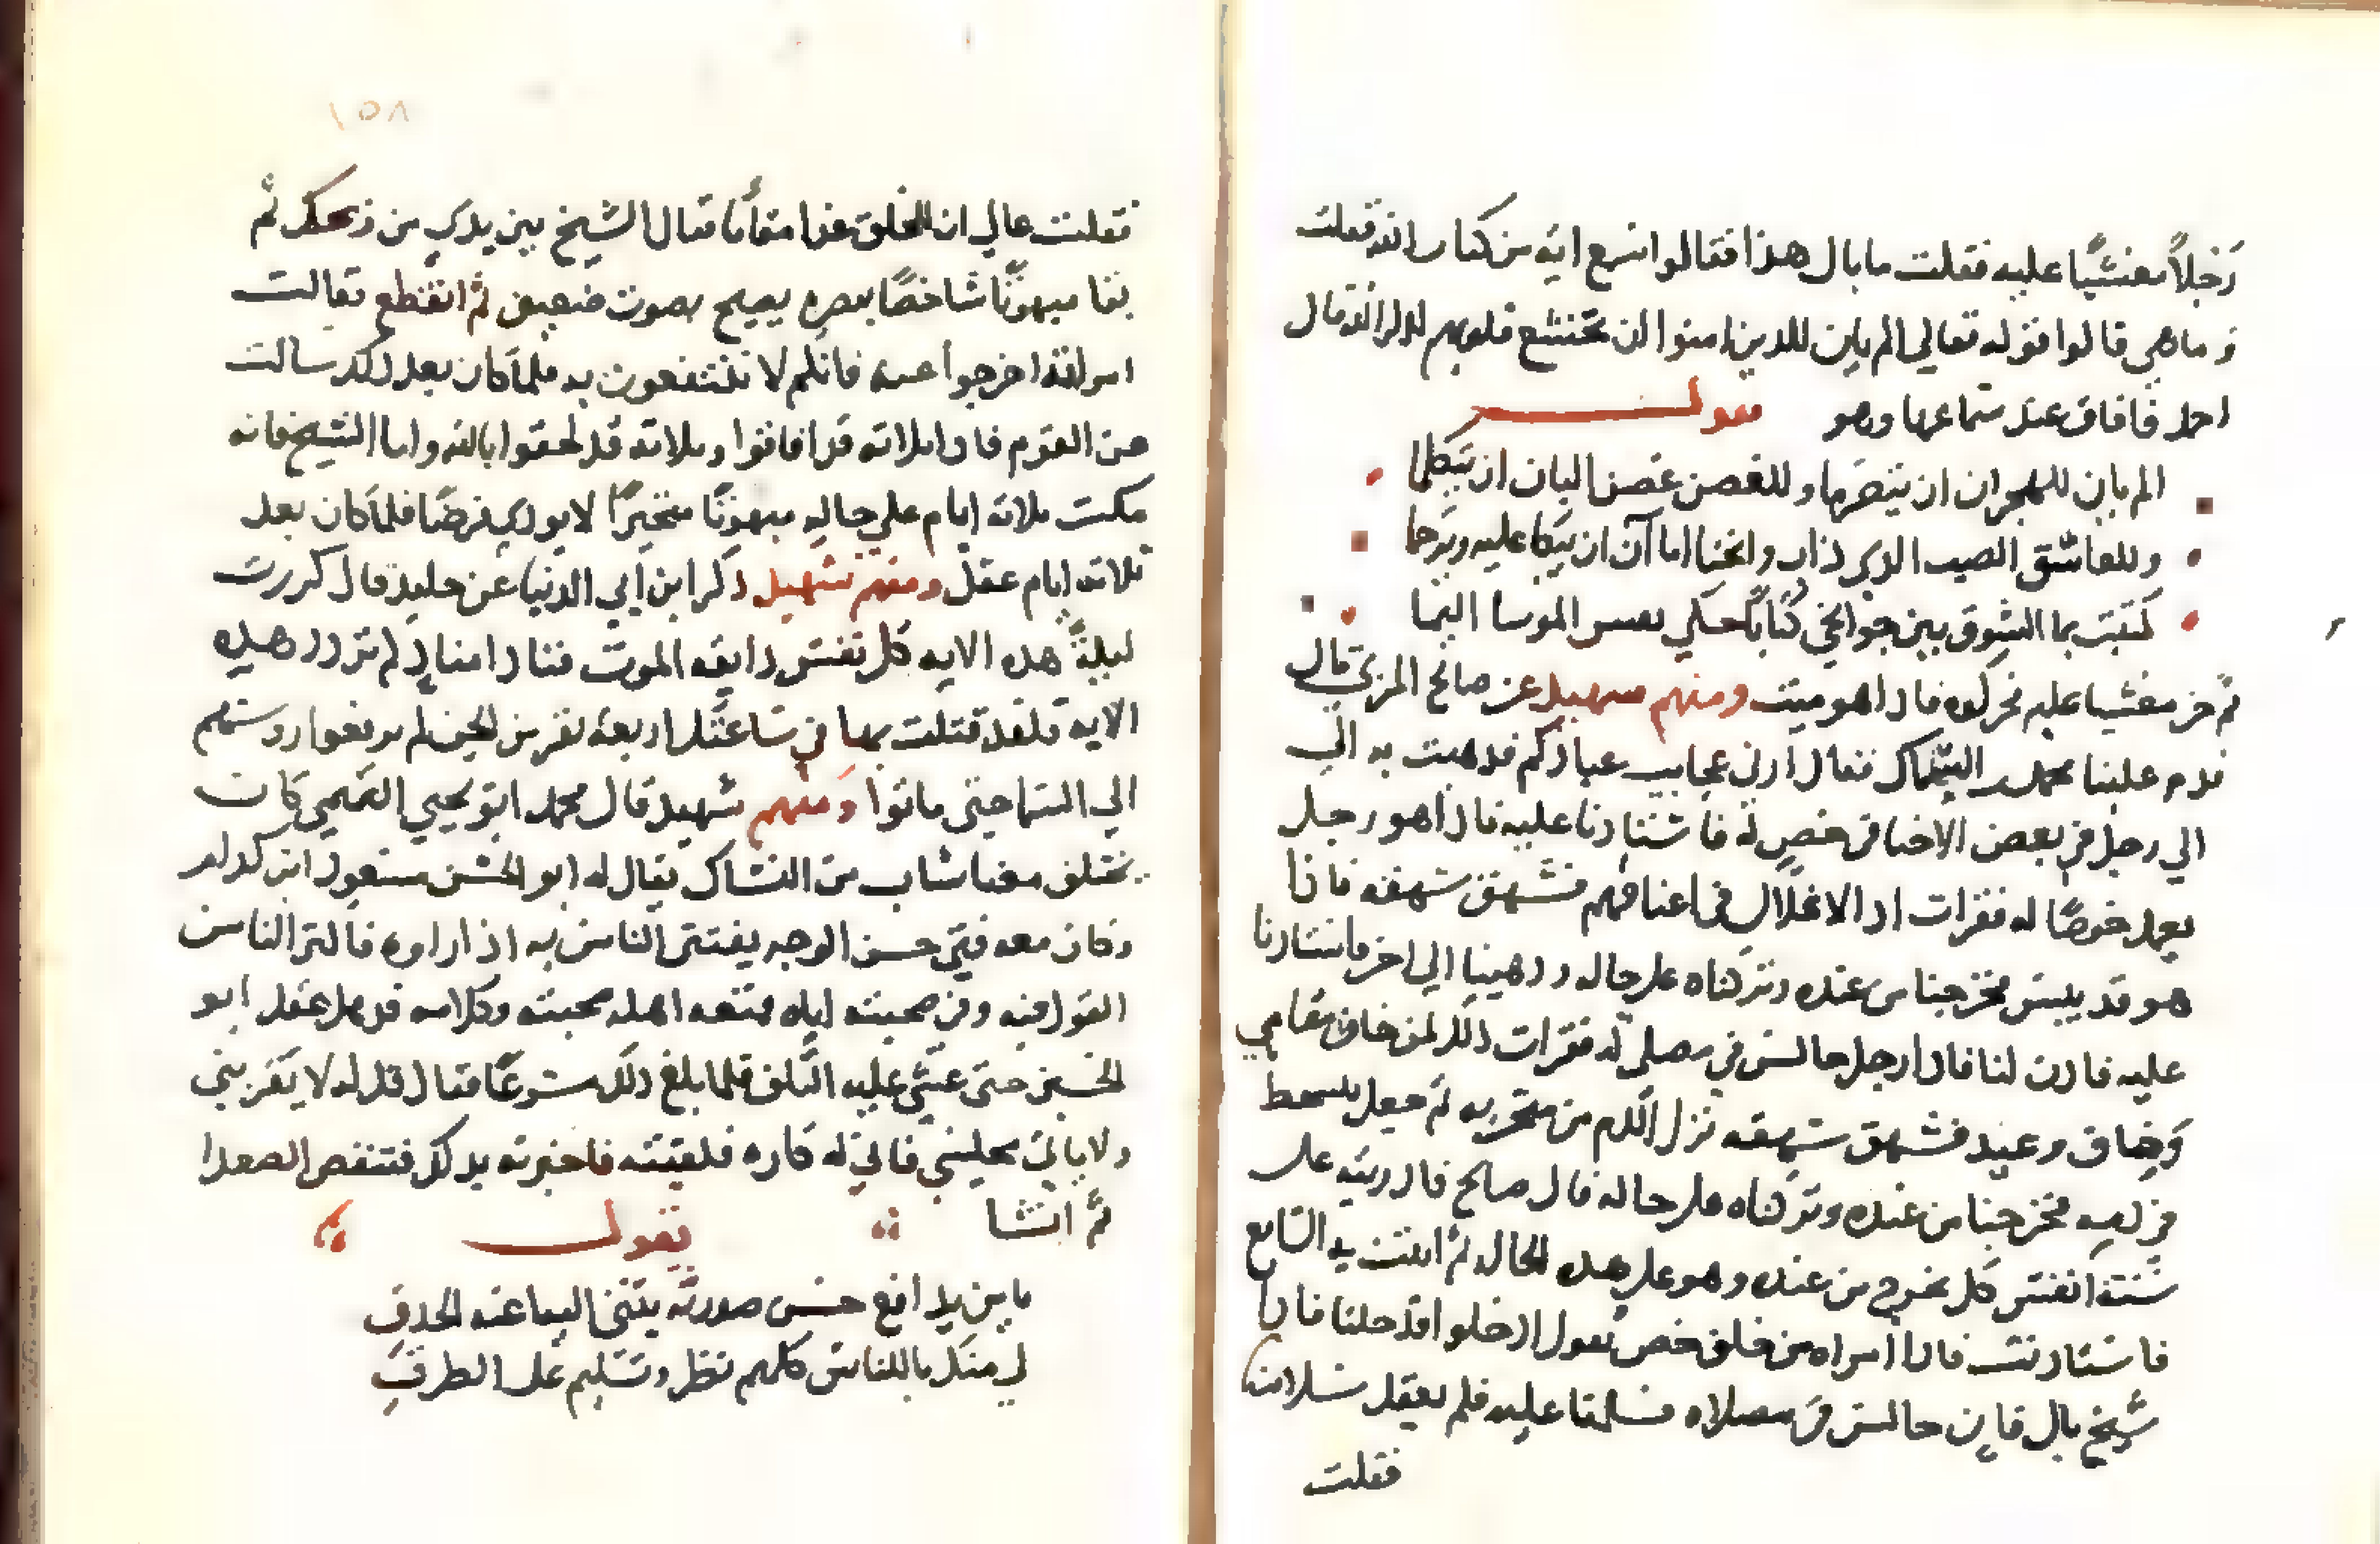 رجلاً مغشيًا عليه فقلت ما بال هذا فقالوا سمع ايه من كتاب الله فقلت
وما هي قالوا قوله تعالي الم يان للدين امنوا ان تخشع قلوبهم لذكر الله قال
احمد فافاق عند سماعها وهو يقول
الم يان للهجران ان يتصرما وللغصن غصن البان ان يتبكا
وللعاشق الصب الدي ذاب وانحنا اما آن ان يبكا عليه ويرحا
كتبت بما الشوق بين جوانحي كتابًا حكي نقس الموشا النما
ثم خر مغشيا عليه فحركوه فادا هو ميت ومنهم شهيد عن صالح المزي قال
قدم علينا محمد بن السماك فقال ارني عجايب عبادكم فدهبت به الي
الي رجل في بعض الاحيا في خص له فاستادنا عليه فادا هو رجل
يعمل خوصًا له فقرات اد الاغلال في اعناقهم فشهق شهقه فاذا
هو قد يبس فخرجنا من عنده وتركناه علي حاله ودهبنا الي اخر فاستادنا
عليه فادن لنا فادا رجل جالس في مصلي له فقرات دلك لمن خاف مقامي
وخاف وعيد فشهق شهقه نزل الدم من منخريه ثم جعل يتشحط
في دمه فخرجنا من عنده وتركناه علي حاله قال صالح فادريته علي
ستة انفس كل نخرج من عنده وهو علي هده الحال ثم اتيت به السابع
فاستادنت فادا امراه من خلف خص تقول ادخلوا فدخلنا فادا
شيخ بال فان جالس في مصلاه فسلمنا عليه فلم يعقل سلامنا
فقلت
١٥٨
فقلت عالي ان للخلق غدا مقاما فقال الشيخ بين يدي من ويحك ثم
بقا مبهوتًا شاخصًا بصره يصيح بصوت ضعيف ثم انقطع فقالت
امراته اخرجوا عنه فانكم لا تنتفعون به فلما كان بعد دلك سالت
عن القوم فادا ثلاثه قد افاقوا وثلاثه قد لحقوا بالله واما الشيخ فانه
مكث ثلاثه ايام علي حاله مبهوتًا متحيرًا لا يودي فرضًا فلما كان بعد
ثلاثه ايام عقل ومنهم شهيد دكر ابن ابي الدنيا عن خليد قال كررت
ليلةً هده الايه كل نفس دايقه الموت فنادا مناد لم تردد هده
الايه فلقد قتلت بها في ساعتك اربعة نفر من الجن لم يرفعوا روسهم
الي السما حتي ماتوا ومنهم شهيد قال محمد ابو يحيي التميمي كان
يختلف معنا شاب من النساك يقال له ابو الحسن مسعود ابن كدام
وكان معه فتي حسن الوجه يفتتن الناس به اذا راوه فاكثر الناس
القول فيه وفي صحبته اياه فمنعه اهله صحبته وكلامه فدهل عقل ابو
الحسين حتي خشي عليه التلف فلما بلغ دلك مسوعًا فقال قل له لا يقربني
ولا ياتي مجلسي فاني له كاره فلقيته فاخبرته بدلك فتنفس الصعدا
ثم انشا يقول
يا من بدايع حسن صورته يثني اليه اعنه الحدق
لي منك ما للناس كلهم نظر وتسليم علي الطرق